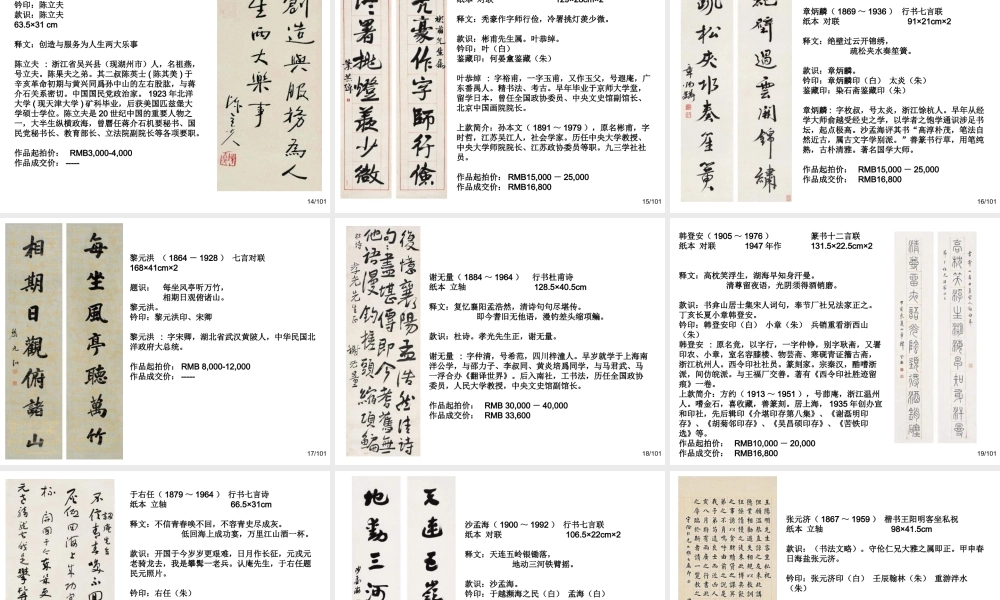 钤印：陈立夫
63.5×31 cm
释文：创造与服务为人生两大乐事
陈立夫：浙江省吴兴县（现湖州市）人，名祖燕，
号立夫。陈果夫之弟。其二叔陈英士（陈其美）于
辛亥革命初期与黄兴同为孙中山的左右股肱，与蒋
介石关系密切。中国国民党政治家。1923年北洋
大学（现天津大学）矿科毕业，后获美国匹兹堡大
学硕士学位。陈立夫是20世纪中国的重要人物之
一，大半生纵横政海，曾历任蒋介石机要秘书、国
民党秘书长、教育部长、立法院副院长等各项要职。
作品起拍价： RMB3,000-4,000
作品成交价： -----
創造與服務為人
生两大樂事
陈立夫
14/101
释文：秃豪作字师行俭，冷署挑灯羡少微。
款识：彬甫先生属。叶恭绰。
钤印：叶（白）
鉴藏印：何晏奮鉴藏（朱）
叶恭绰：字裕甫，一字玉甫，又作玉父，号遐庵，广
东番禺人。精书法、考古。早年毕业于京师大学堂，
留学日本，曾任全国政协委员、中央文史馆副馆长、
北京中国画院院长。
上款简介：孙本文（1891～1979），原名彬甫，字
时哲，江苏吴江人，社会学家。历任中央大学教授、
中央大学师院院长、江苏政协委员等职。九三学社社
员。
作品起拍价： RMB15,000－25,000
作品成交价： RMB16,800
豪作字師行儉
署挑燈羨少微
15/101
章炳麟（1869～1936） 行书七言联
纸本 对联 91×21cm×2
释文：绝壁过云开锦绣，
疏松夹水奏笙簧。
款识：章炳麟。
钤印：章炳麟印（白） 太炎（朱）
鉴藏印：染石斋鉴藏印（朱）
章炳麟：字枚叔，号太炎，浙江馀杭人。早年从经
学大师俞越受经史之学，以学者之饱学通识涉足书
坛，起点极高。沙孟海评其书“高淳朴茂，笔法自
然近古，属古文字学别派。”善篆书行草，用笔纯
熟，古朴清雅。著名国学大师。
作品起拍价： RMB15,000－25,000
作品成交价： RMB16,800
壁過雲開錦繡
疏松夹水奏笙簧
章炳麟
16/101
每坐風亭聽萬竹
相期日觀俯諸山
黎元洪（1864－1928） 七言对联
168×41cm×2
题识： 每坐风亭听万竹，
相期日观俯诸山。
黎元洪。
钤印：黎元洪印、宋卿
黎元洪：字宋卿，湖北省武汉黄陂人，中华民国北
洋政府大总统。
作品起拍价： RMB 8,000-12,000
作品成交价： -----
17/101
復憶襄陽孟浩然清詩
句句盡堪傳即今耆舊無
他語漫釣槎頭縮項鯿
杜诗
谢无量
谢无量（1884～1964） 行书杜甫诗
纸本 立轴 128.5×40.5cm
释文：复忆襄阳孟浩然，清诗句句尽堪传。
即今耆旧无他语，漫钓差头缩项鳊。
款识：杜诗。孝光先生正，谢无量。
谢无量：字仲清，号希范，四川梓潼人。早岁就学于上海南
洋公学，与邵力子、李叔同、黄炎培为同学，与马君武、马
一浮合办《翻译世界》。后入南社，工书法，历任全国政协
委员，人民大学教授，中央文史馆副馆长。
作品起拍价： RMB 30,000－40,000
作品成交价： RMB 33,600
18/101
韩登安（1905～1976） 篆书十二言联
纸本 对联 1947 年作 131.5×22.5cm×2
释文：高枕笑浮生，湖海早知身汗曼。
清尊留夜光，光阴须得酒销磨。
款识：书弇山居士集宋人词句，奉节厂社兄法家正之。
丁亥长夏小章韩登安。
钤印：韩登安印（白） 小章（朱） 兵销重看浙西山
（朱）
韩登安：原名竞，以字行，一字仲铮，别字耿斋，又署
印农、小章，室名容膝楼、物芸斋、寒碗青证籀古斋，
浙江杭州人。西令印社社员。篆刻家。宗秦汉，酷嗜浙
派，闰仿皖派。与王福厂交善。著有《西令印社胜迹留
痕》一卷。
上款简介：方约（1913～1951），号莭庵，浙江温州
人。嗜金石，喜收藏，善篆刻，居上海， 1935年创办宣
和印社，先后辑印《介堪印存第八集》、《谢磊明印
存》、《胡菊邻印存》、《吴昌硕印存》、《苦铁印
选》等。
作品起拍价： RMB10,000－20,000
作品成交价： RMB16,800
19/101
于右任（1879～1964） 行书七言诗
纸本 立轴 66.5×31cm
释文：不信青春唤不回，不容青史尽成灰。
低回海上成功宴，万里江山酒一杯。
款识：开国于今岁岁更艰难，日月作长征，元戎元
老骑龙去，我是攀髯一老兵。认庵先生，于右任题
民元照片。
钤印：右任（朱）
天連五嶺
地動三河
沙孟海（1900～1992） 行书七言联
纸本 对联 106.5×22cm×2
释文：天连五岭银锄落，
地动三河铁臂摇。
款识：沙孟海。
钤印：于越濒海之民（白） 孟海（白）
张元济（1867～1959） 楷书王阳明客坐私祝
纸本 立轴 98×41.5cm
款识：（书法文略）。守伦仁兄大雅之属即正。甲申春
日海盐张元济。
钤印：张元济印（白） 壬辰翰林（朱） 重游泮水
（朱）